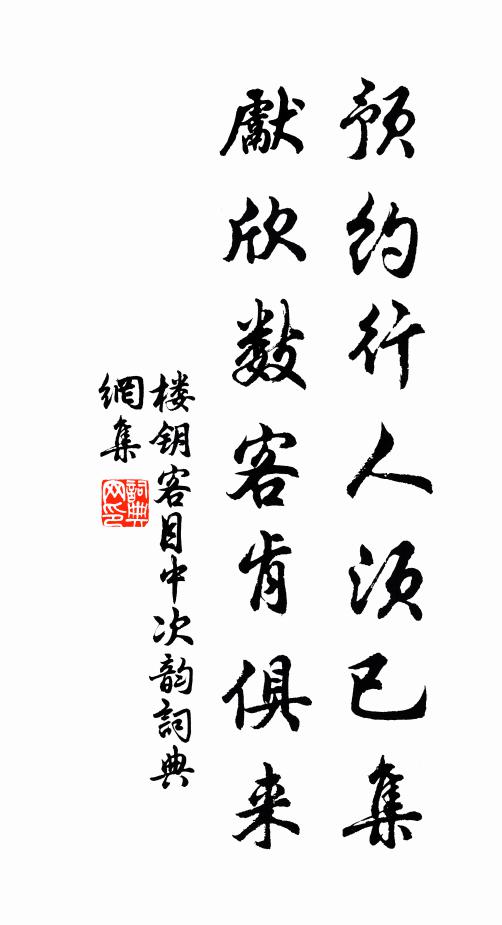 预约行人须已集
献欣数客肯俱来
楼钥客目中次韵詞典
網集
詞典
网印